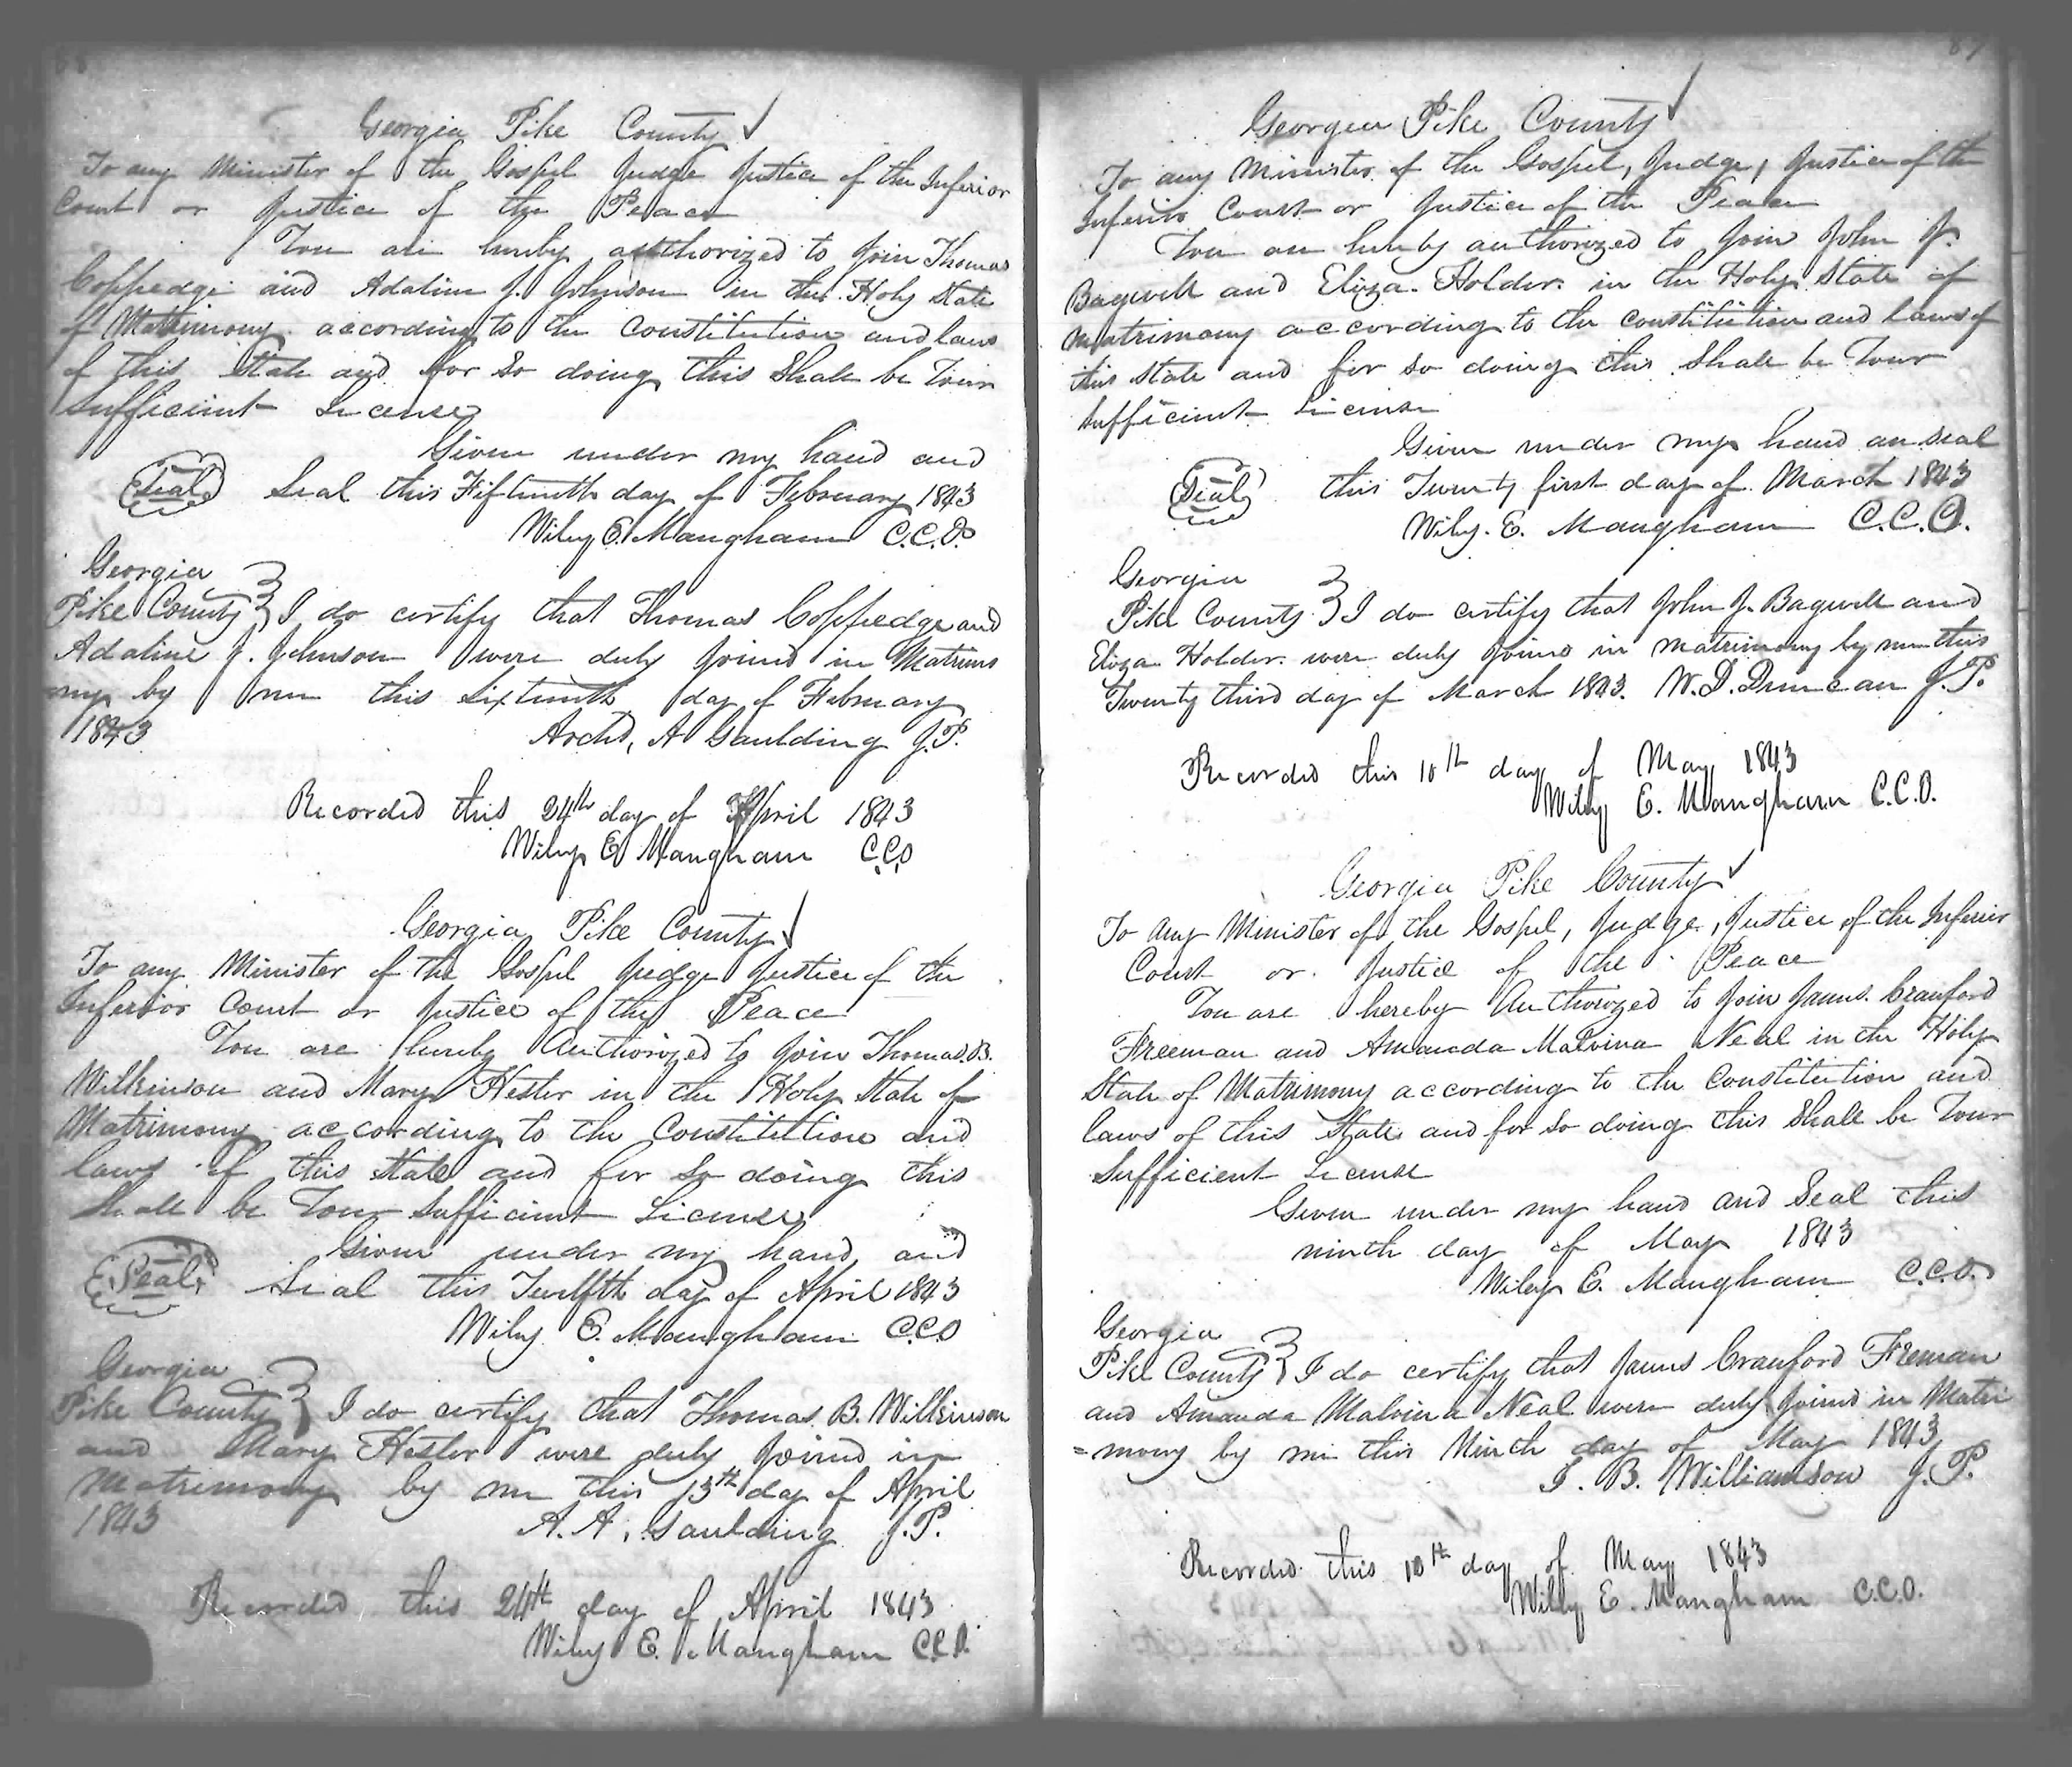 Georgia Pike County
To any Minister of the Gospel Judge Justice of the Inferior
Court or Justice of the Peace
You are hereby authorized to Join Thomas
Coppedge and Adaline J. Johnson in the Holy State
of Matrimony according to the Constitution and laws
of this State and for so doing this Shall be Your
Sufficient License
Given under my hand and
Seal
Seal this Fifteenth day of February 1843
Wiley E. Mangham C.C.O.
Georgia
Pike County } I do certify that Thomas Coppedge and
Adaline J. Johnson were duly joined in Matrimo
ny by me this Sixteenth day of February
1843
Archd. A Gaulding J.P.
Recorded this 24th day of April 1843
Wiley E Mangham C.C.O
Georgia Pike County
To any Minister of the Gospel Judge Justice of the
Inferior Court or Justice of the Peace
You are hereby Authorized to Join Thomas. B.
Wilkinson and Mary Hester in the Holy State of
Matrimony according to the Constitution and
laws of this State and for so doing this
Shall be Your Sufficient License
Given under my hand and
Seal
Seal this Twelfth day of April 1843
Wiley E. Mangham C.C.O
Georgia
Pike County } I do certify that Thomas B. Wilkinson
and Mary Hester were duly Joined in
Matrimony by me this 13th day of April
1843
A. A. Gaulding J.P.
Recorded this 24th day of April 1843
Wiley E. Mangham C.C.O.
Georgia Pike County
To any Minister of the Gospel, Judge, Justice of the
Inferior Court or Justice of the Peace
You are hereby authorized to Join John J.
Bagwell and Eliza Holder in the Holy State of
Matrimony according to the constitution and laws of
this State and for so doing this Shall be Your
Sufficient License
Given under my hand an Seal
Seal
this Twenty first day of March 1843
Wiley. E. Mangham C.C.O.
Georgia
Pike County } I do certify that John J. Bagwell and
Eliza Holder were duly Joined in matrimony by me this
Twenty third day of March 1843. W. D. Duncan J.P.
Recorded this 10th day of May 1843
Wiley E. Mangham C.C.O.
Georgia Pike County
To Any Minister of the Gospel, Judge, Justice of the Inferior
Court or Justice of the Peace
You are hereby Authorized to Join James Cranford
Freeman and Amanda Malvina Neal in the Holy
State of Matrimony according to the Constitution and
laws of this State and for so doing this Shall be Your
Sufficient License
Given under my hand and Seal this
ninth day of May 1843
Wiley E. Mangham C.C.O.
Georgia
Pike County } I do certify that James Cranford Freeman
and Amanda Malvina Neal were duly Joined in Matri
=mony by me this Ninth day of May 1843
I. B. Williamson J.P.
Recorded this 10th day of May 1843
Wiley E. Mangham C.C.O.